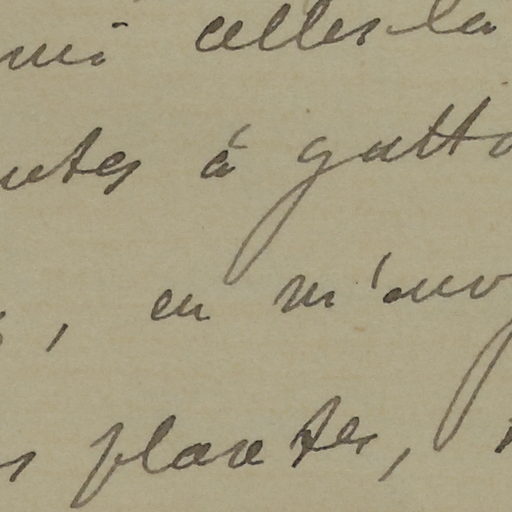 mi celles-la
ntes à gutta
, en m'envoy
s plantes,